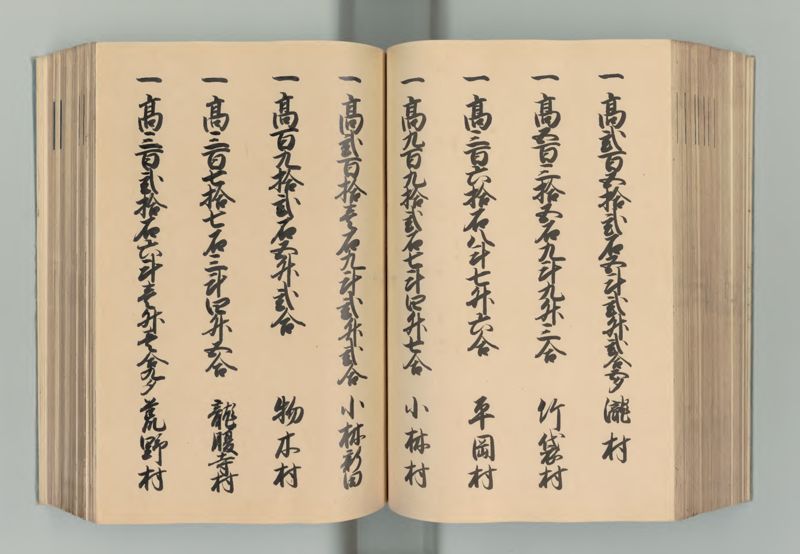 一高弐百五拾弐石五斗弐升弐合五夕 瀧村
一高五百三拾五石九斗九升三合 竹袋村
一高三百六拾石八斗七升六合 平岡村
一高九百九拾弐石七斗四升七合 小林村
一高弐百拾壱石九斗弐升弐合 小林新田
一高百九拾弐石五升弐合 物木村
一高三百七拾七石三斗四升五合 龍腹寺村
一高三百弐拾石六斗壱升七合九夕 荒野村